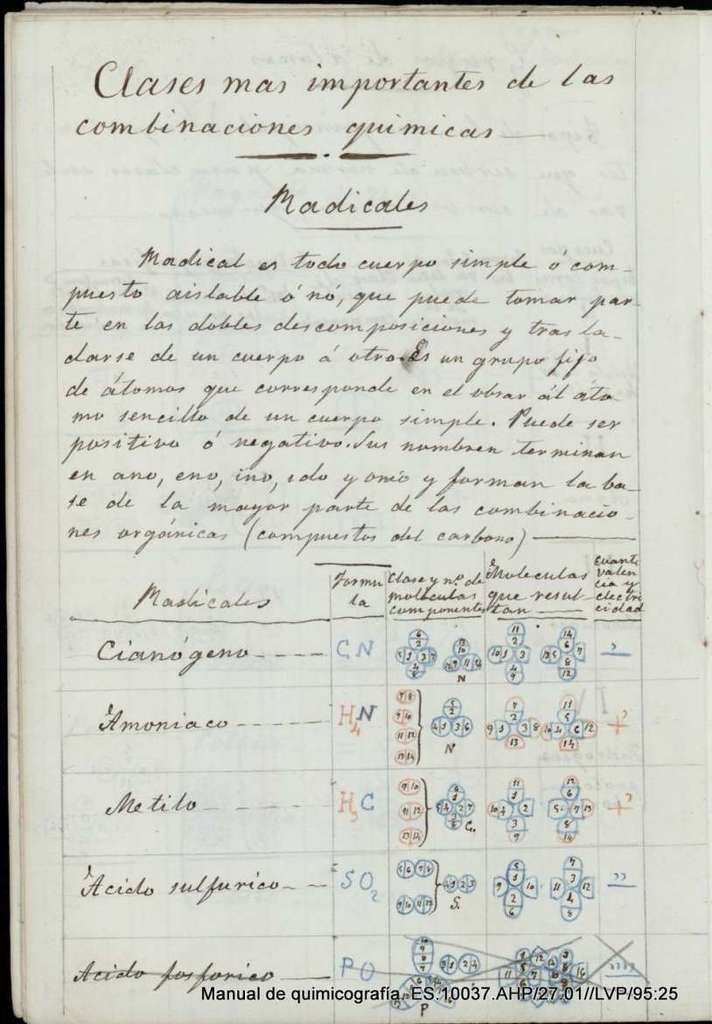 Clases mas importantes de las
combinaciones quimicas
Radicales
Radical es todo cuerpo simple ó com-
puesto aislable ó nó, que puede tomar par-
te en las dobles descomposiciones y trasla-
darse de un cuerpo á otro. Es un grupo fijo
de átomos que corresponde en el obrar ál áto
mo sencillo de un cuerpo simple. Puede ser
positivo ó negativo. Sus nombres terminan
en ano, eno, ino, ido y onio y forman la ba-
se de la mayor parte de las combinacio-
nes orgánicas (compuestos del carbono)
Radicales
Formu
la
Clase y nº de
moleculas
componentes
Moleculas
que resul-
tan
cuanti
valen
cia y
electri
cidad
Cianógeno CN N
Amoniaco H4N N +'
Metilo H3C C. +'
Ácido sulfurico SO2 S. "
Acido fosforico PO P
Manual de quimicografía. ES.10037.AHP/27.01//LVP/95:25